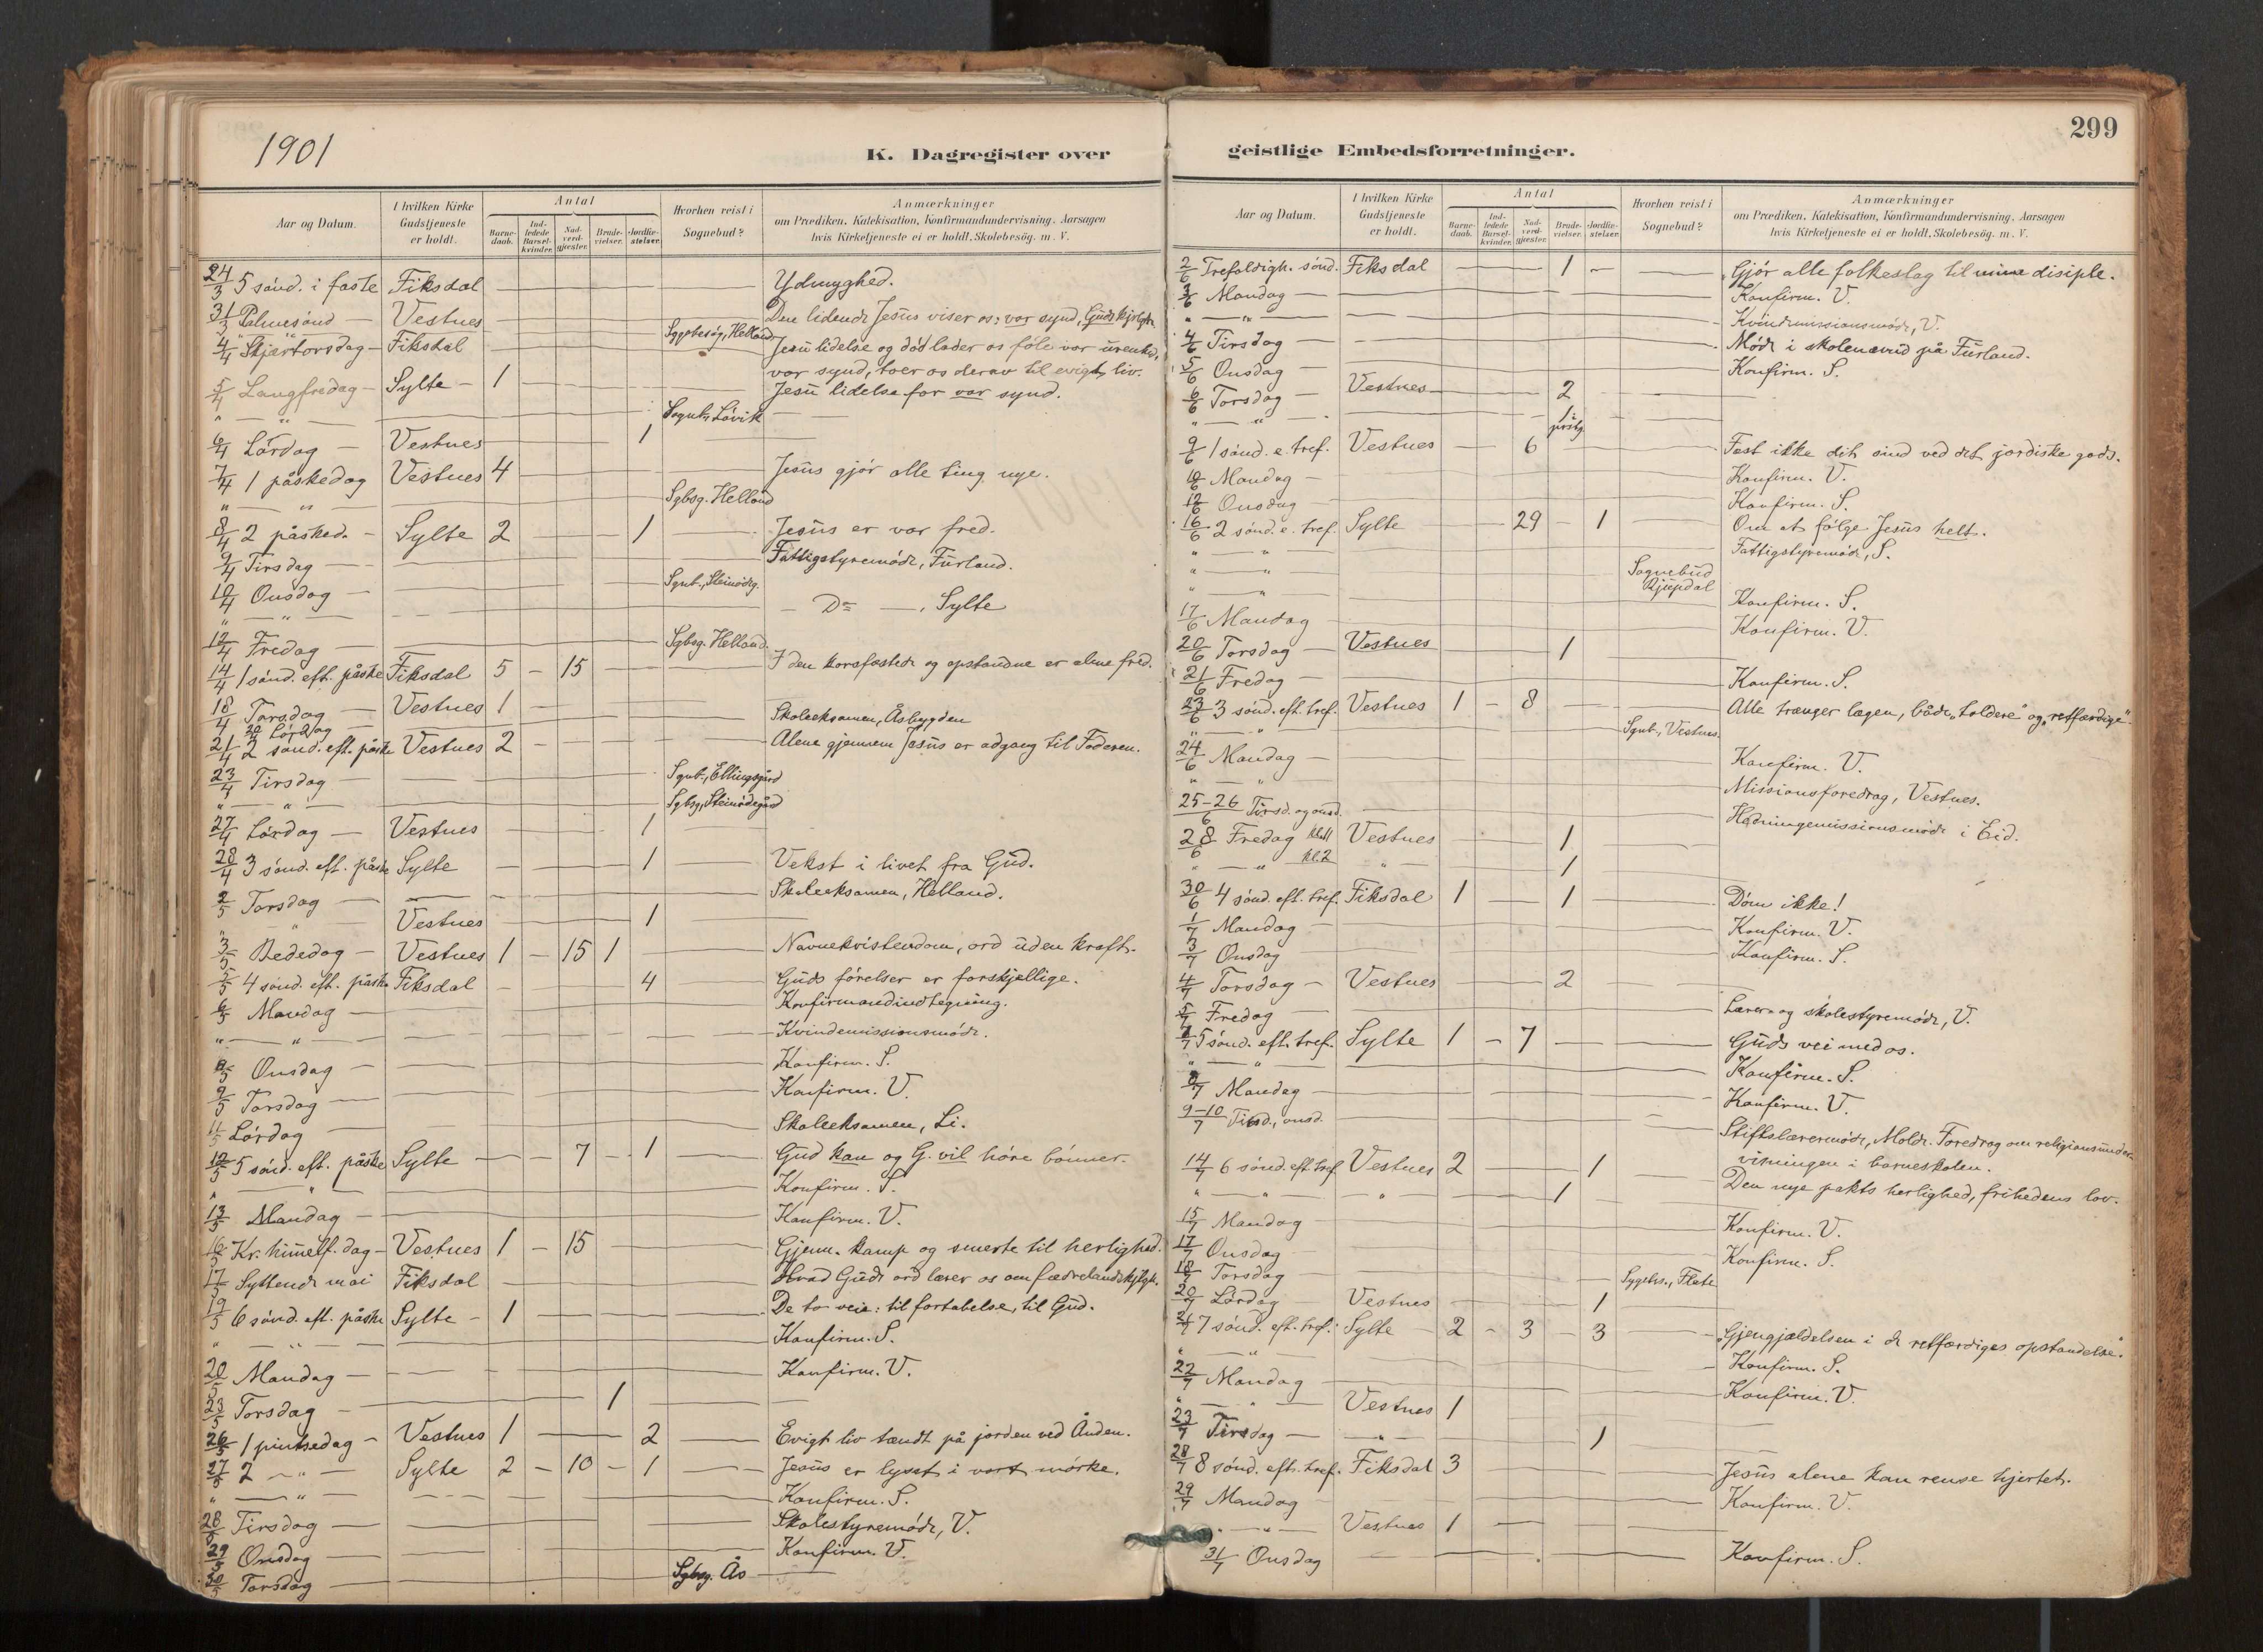 299
1901
K. Dagregister over geistlige Embedsforretninger.
Aar og Datum. I hvilken Kirke Gudstjeneste er holdt. Antal Barne-daab. Ind-ledede Barsel-kvinder. Nad-verd-gjester. Brude-vielser. Jordfæ-stelser. Hvorhen reist i Sognebud? Anmærkninger om Prædiken, Katekisation, Konfirmandundervisning, Aarsagen hvis Kirketjeneste ei er holdt, Skolebesög. m. V.
24/3 5 sønd. i faste Fiksdal — Ydmyghed.
31/3 Palmesønd — Vestnes — Den lidende Jesus viser os: vor synd, Guds kjerlighed.
4/4 Skjærtorsdag — Fiksdal Sygebesøg, Helland Jesu lidelse og død lader os føle vor urenhed,
vor synd, toer os derav til evigt liv.
5/4 Langfredag — Sylte — 1 Jesu lidelse for vor synd.
" — " — Sognb, Løvik —
6/4 Lørdag — Vestnes 1 —
7/4 1 påskedag Vestnes 4 Jesus gjør alle ting nye.
" — " — Sgbsg. Helland
8/4 2 påsked. — Sylte 2 1 Jesus er vor fred.
9/4 Tirsdag — Fattigstyremøde, Furland.
10/4 Onsdag — Sgnb., Steinødeg.
" — " — — Do —, Sylte
12/4 Fredag — Sgbsg. Helland.
14/4 1 sønd. eft. påske Fiksdal 5 — 15 I den korsfæstede og opstandne er alene fred.
18/4 Torsdag — Vestnes 1
20 Lørdag Skoleeksamen, Åsbygden
21/4 2 sønd. eft. påske Vestnes 2 Alene gjennem Jesus er adgang til Faderen.
23/4 Tirsdag — Sgnb., Ellingsgård
" — " — Sgbsg, Steinødegård
27/4 Lørdag — Vestnes 1
28/4 3 sønd. eft. påske Sylte 1 Vekst i livet fra Gud.
2/5 Torsdag — Skoleeksamen, Helland.
" " Vestnes 1 —
3/5 Bededag — Vestnes 1 — 15 1 Navnekristendom, ord uden kraft.
5/5 4 sønd. eft. påske Fiksdal 4 Guds førelser er forskjellige.
6/5 Mandag — Konfirmandindtegning.
" — " — Kvindemissionsmøde.
8/5 Onsdag — Konfirm. S.
9/5 Torsdag — Konfirm. V.
11/5 Lørdag Skoleeksamen, Li.
12/5 5 sønd. eft. påske Sylte — 7 — 1 Gud kan og G. vil høre bønner.
" — " — Konfirm. S.
13/5 Mandag — Konfirm. V.
16/5 Kr. himmelf. dag — Vestnes 1 — 15 Gjenn. kamp og smerte til herlighed.
17/5 Syttende mai Fiksdal Hvad Guds ord lærer os om fædrelandskjærligh.
19/5 6 sønd. eft. påske Sylte — 1 De to veie: til fortabelse, til Gud.
" — " — Konfirm. S.
20/5 Mandag — Konfirm. V.
23/5 Torsdag — 1 —
26/5 1 pintsedag — Vestnes 1 — 2 Evigt liv tændt på jorden ved Ånden.
27/5 2 — " — Sylte 2 — 10 — 1 Jesus er lyset i vort mørke.
" — " — Konfirm. S.
28/5 Tirsdag — Skolestyremøde, V.
29/5 Onsdag — Konfirm. V.
30/5 Torsdag — Sgbsg. Ås —
Aar og Datum. I hvilken Kirke Gudstjeneste er holdt. Antal Barne-daab. Ind-ledede Barsel-kvinder. Nad-verd-gjester. Brude-vielser. Jordfæ-stelser. Hvorhen reist i Sognebud? Anmærkninger om Prædiken, Katekisation, Konfirmandundervisning, Aarsagen hvis Kirketjeneste ei er holdt, Skolebesög. m. V.
2/6 Trefoldigh. sønd. Fiksdal — 1 — Gjør alle folkeslag til mine disiple.
3/6 Mandag — Konfirm. V.
" — " — Kvindemissionsmøde, V.
4/6 Tirsdag — Møde i skolenævnd på Furland.
5/6 Onsdag — Konfirm. S.
6/6 Torsdag — Vestnes — 2
" — " 1
9/6 1 sønd. e. tref. Vestnes — 6 Fest ikke dit sind ved det jordiske gods.
10/6 Mandag — Konfirm. V.
12/6 Onsdag Konfirm. S.
16/6 2 sønd. e. tref. Sylte — 29 — 1 Om at følge Jesus helt.
" — " Fattigstyremøde, S.
" — " Sognebud Djupdal
" — " Konfirm. S.
17/6 Mandag Konfirm. V.
20/6 Torsdag — Vestnes 1
21/6 Fredag — Konfirm. S.
23/6 3 sønd. eft. tref. Vestnes 1 — 8 Alle trænger lægen, både „toldere" og „retfærdige".
" — " Sgnb., Vestnes.
24/6 Mandag — Konfirm. V.
" — " Missionsforedrag, Vestnes.
25–26/6 Tirsd. og onsd. Hedningemissionsmøde i Eid.
28/6 Fredag kl. 11 Vestnes 1
" — " kl. 2 " 1
30/6 4 sønd. eft. tref. Fiksdal 1 — 1 Døm ikke!
1/7 Mandag — Konfirm. V.
3/7 Onsdag Konfirm. S.
4/7 Torsdag — Vestnes 2
5/7 Fredag — Lærer- og skolestyremøde, V.
7/7 5 sønd. eft. tref. Sylte 1 — 7 Guds vei med os.
" — " Konfirm. S.
8/7 Mandag — Konfirm. V.
9–10/7 Tirsd., onsd. Stiftslærermøde, Molde. Foredrag om religionsunder-
visningen i barneskolen.
14/7 6 sønd. eft. tref Vestnes 2 — 1 Den nye pakts herlighed, frihedens lov.
" — " — " — 1
15/7 Mandag Konfirm. V.
17/7 Onsdag Konfirm. S.
18/7 Torsdag Sygebes., Flate
20/7 Lørdag Vestnes — 1
21/7 7 sønd. eft. tref. Sylte — 2 — 3 — 3 „Gjengjældelsen i de retfærdiges opstandelse."
" — " Konfirm. S.
22/7 Mandag Konfirm. V.
" " Vestnes 1
23/7 Tirsdag — " 1
28/7 8 sønd. eft. tref. Fiksdal 3 Jesus alene kan rense hjertet.
29/7 Mandag Konfirm. V.
" — " — Vestnes 1 —
31/7 Onsdag Konfirm. S.